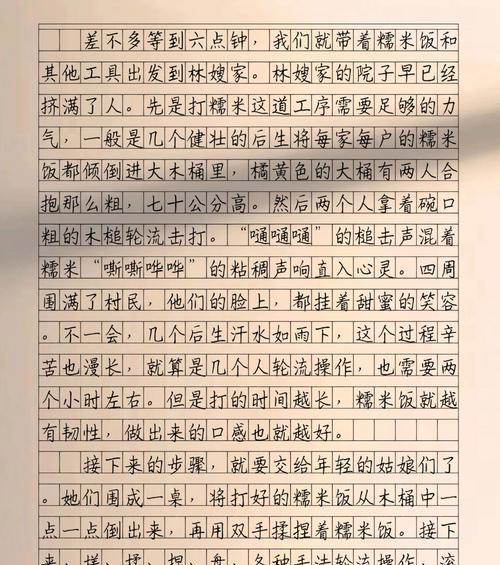 差不多等到六点钟，我们就带着糯米饭和
其他工具出发到林嫂家。林嫂家的院子早已经
挤满了人。先是打糯米这道工序需要足够的力
气，一般是几个健壮的后生将每家每户的糯米
饭都倾倒进大木桶里，橘黄色的大桶有两人合
抱那么粗，七十公分高。然后两个人拿着碗口
粗的木槌轮流击打。“嗵嗵嗵”的槌击声混着
糯米“嘶嘶哗哗”的粘稠声响直入心灵。四周
围满了村民，他们的脸上，都挂着甜蜜的笑容
。不一会，几个后生汗水如雨下，这个过程辛
苦也漫长，就算是几个人轮流操作，也需要两
个小时左右。但是打的时间越长，糯米饭就越
有韧性，做出来的口感也就越好。
接下来的步骤，就要交给年轻的姑娘们了
。她们围成一桌，将打好的糯米饭从木桶中一
点一点倒出来，再用双手揉捏着糯米饭。接下
来，搓、揉、捏、盘，各种手法轮流操作，滚